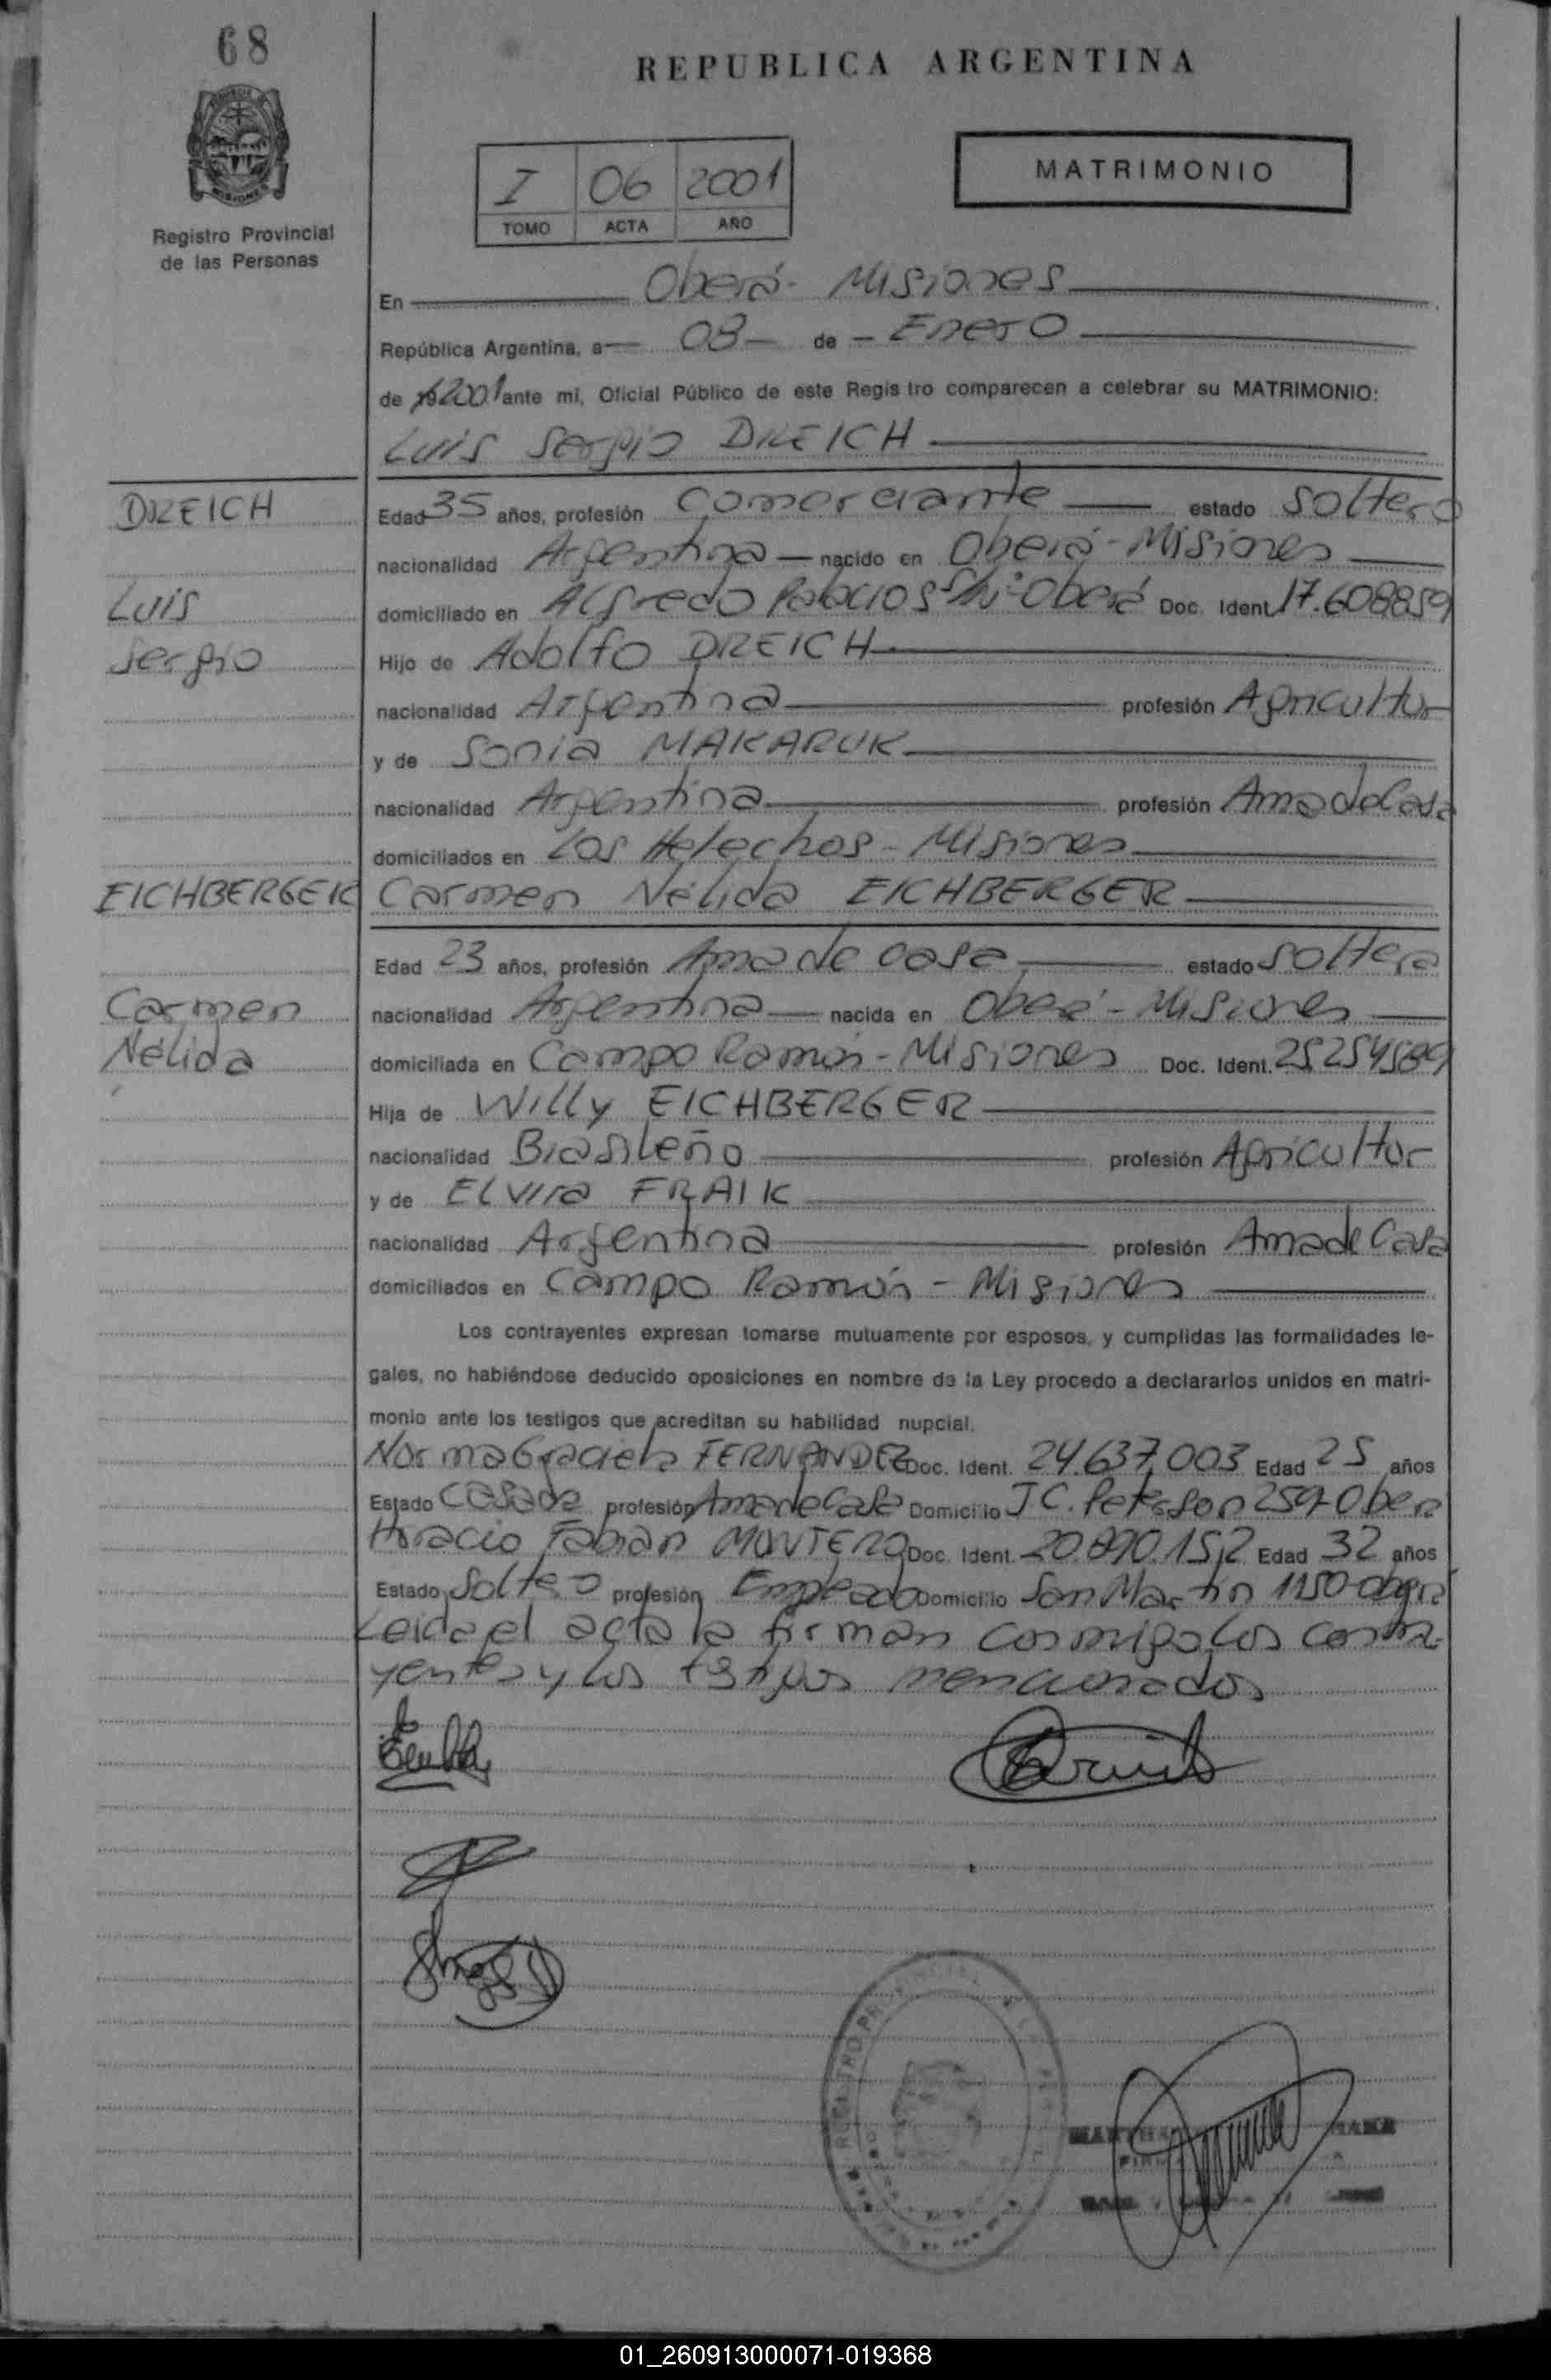 68
REPUBLICA ARGENTINA
MISIONES
Registro Provincial
de las Personas
I 06 2001
TOMO ACTA AÑO
MATRIMONIO
En Oberá - Misiones
República Argentina, a 08 de Enero
de 19 2001 ante mi, Oficial Público de este Registro comparecen a celebrar su MATRIMONIO:
Luis Sergio DREICH
DREICH
Luis
Sergio
Edad 35 años, profesión Comerciante estado Soltero
nacionalidad Argentina nacido en Oberá - Misiones
domiciliado en Alfredo Palacios S/Nº Oberá Doc. Ident. 17.608859
Hijo de Adolfo DREICH
nacionalidad Argentina profesión Agricultor
y de Sonia MAKARUK
nacionalidad Argentina profesión Ama de Casa
domiciliados en Los Helechos - Misiones
EICHBERGER Carmen Nélida EICHBERGER
Carmen
Nélida
Edad 23 años, profesión Ama de casa estado Soltera
nacionalidad Argentina nacida en Oberá - Misiones
domiciliada en Campo Ramón - Misiones Doc. Ident.
Hija de Willy EICHBERGER
nacionalidad Brasileño profesión Agricultor
y de Elvira FRAIK
nacionalidad Argentina profesión Ama de Casa
domiciliados en Campo Ramón - Misiones
Los contrayentes expresan tomarse mutuamente por esposos, y cumplidas las formalidades le-
gales, no habiéndose deducido oposiciones en nombre de la Ley procedo a declararlos unidos en matri-
monio ante los testigos que acreditan su habilidad nupcial.
Norma Graciela FERNANDEZ Doc. Ident. 24.637.003 Edad 25 años
Estado Casada profesión Ama de Casa Domicilio J.C. Peterson 259-Oberá
Horacio Fabian MONTERO Doc. Ident. 20.890.152 Edad 32 años
Estado Soltero profesión Empleado Domicilio San Martín 1150-Oberá
Leida el acta la firman conmigo, los contra-
yentes y los testigos mencionados
01_260913000071-019368